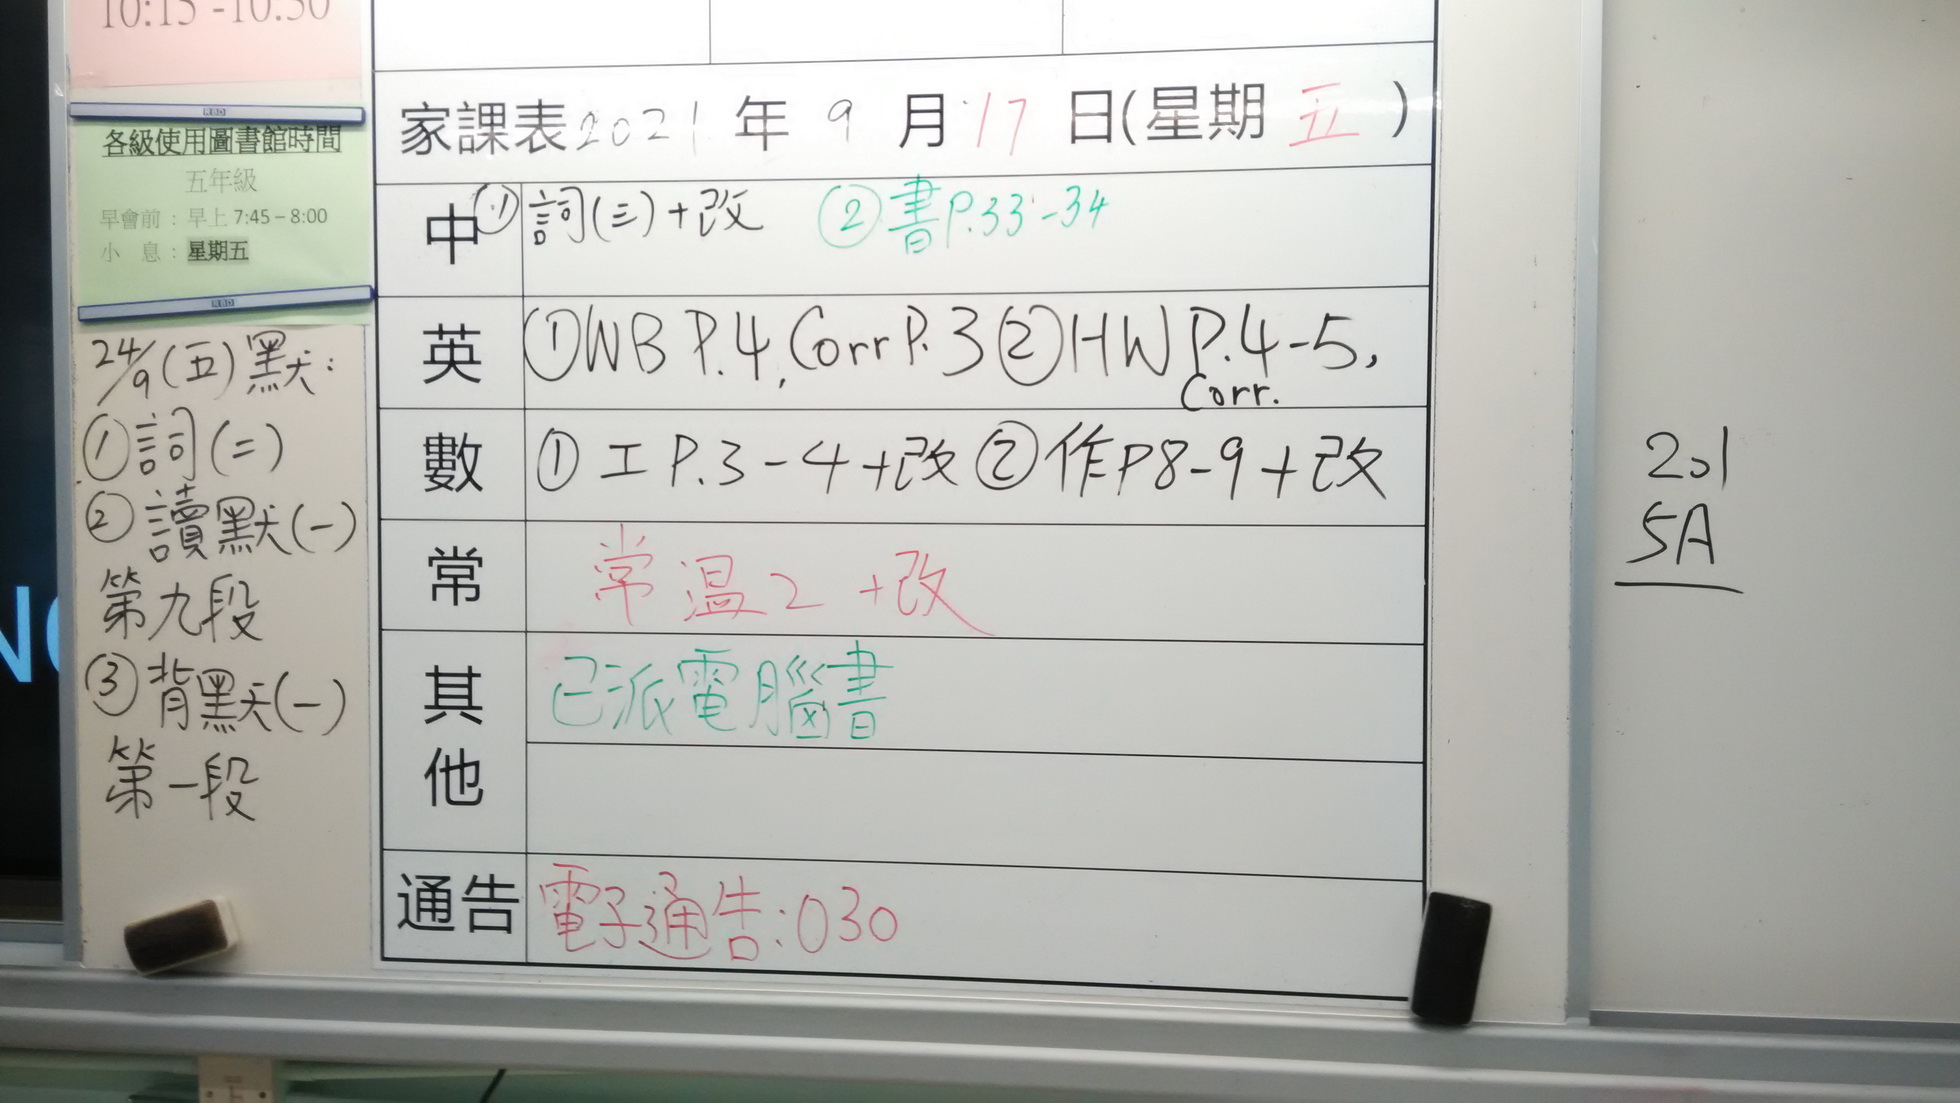 10:15 -10:30
各級使用圖書館時間
五年級
早會前：早上 7:45 – 8:00
小 息：星期五
24/9(五)默：
①詞(二)
②讀默(一)
第九段
③背默(一)
第一段
家課表2021年9月17日(星期五)
中 ①詞(三)+改 ②書P.33-34
英 ①WB P.4, Corr P.3 ②HW P.4-5,
Corr.
數 ①工P.3-4+改 ②作P8-9+改
常 常溫2+改
其他 已派電腦書
通告 電子通告:030
201
5A